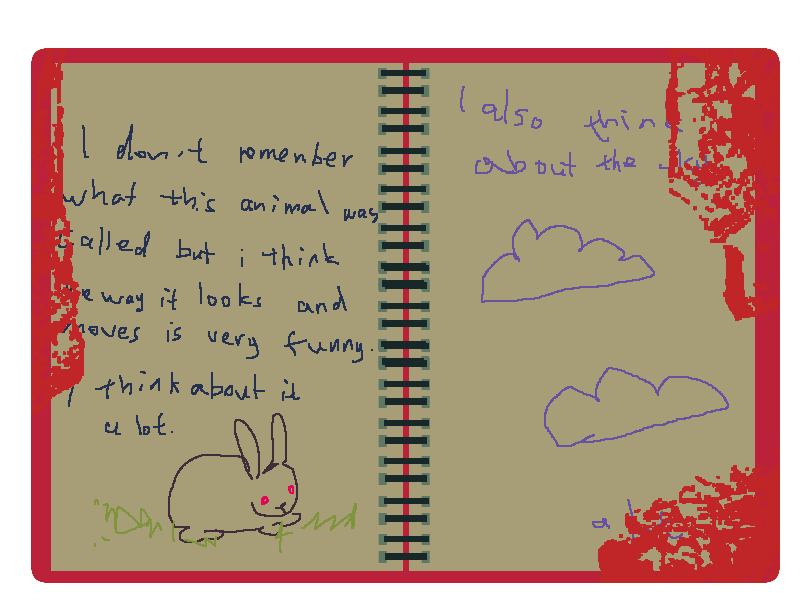 I don't remember
what this animal was
called but i think
e way it looks and
moves is very funny.
I think about it
a lot.
I also think
about the sky
a